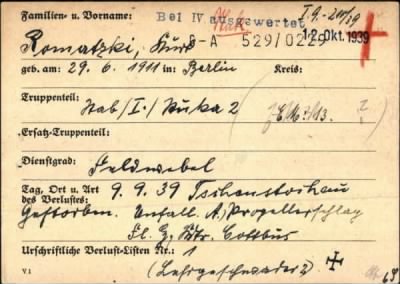 Familien- u. Vorname: Bei IV ausgewertet
Romatzki, Kurt S-A 529/0229 12. Okt. 1939
geb. am: 29. 6. 1911 in Berlin Kreis:
Truppenteil:
Stab/I./Stuka 2
Ersatz-Truppenteil:
Dienstgrad: Feldwebel
Tag, Ort u. Art des Verlustes: 9. 9. 39 Tschenstochau
Gestorben. Unfall. A) Propellerschlag
Fl. Cottbus
Urschriftliche Verlust-Listen Nr.: 1
V 1 (Lehrgeschwader 2)